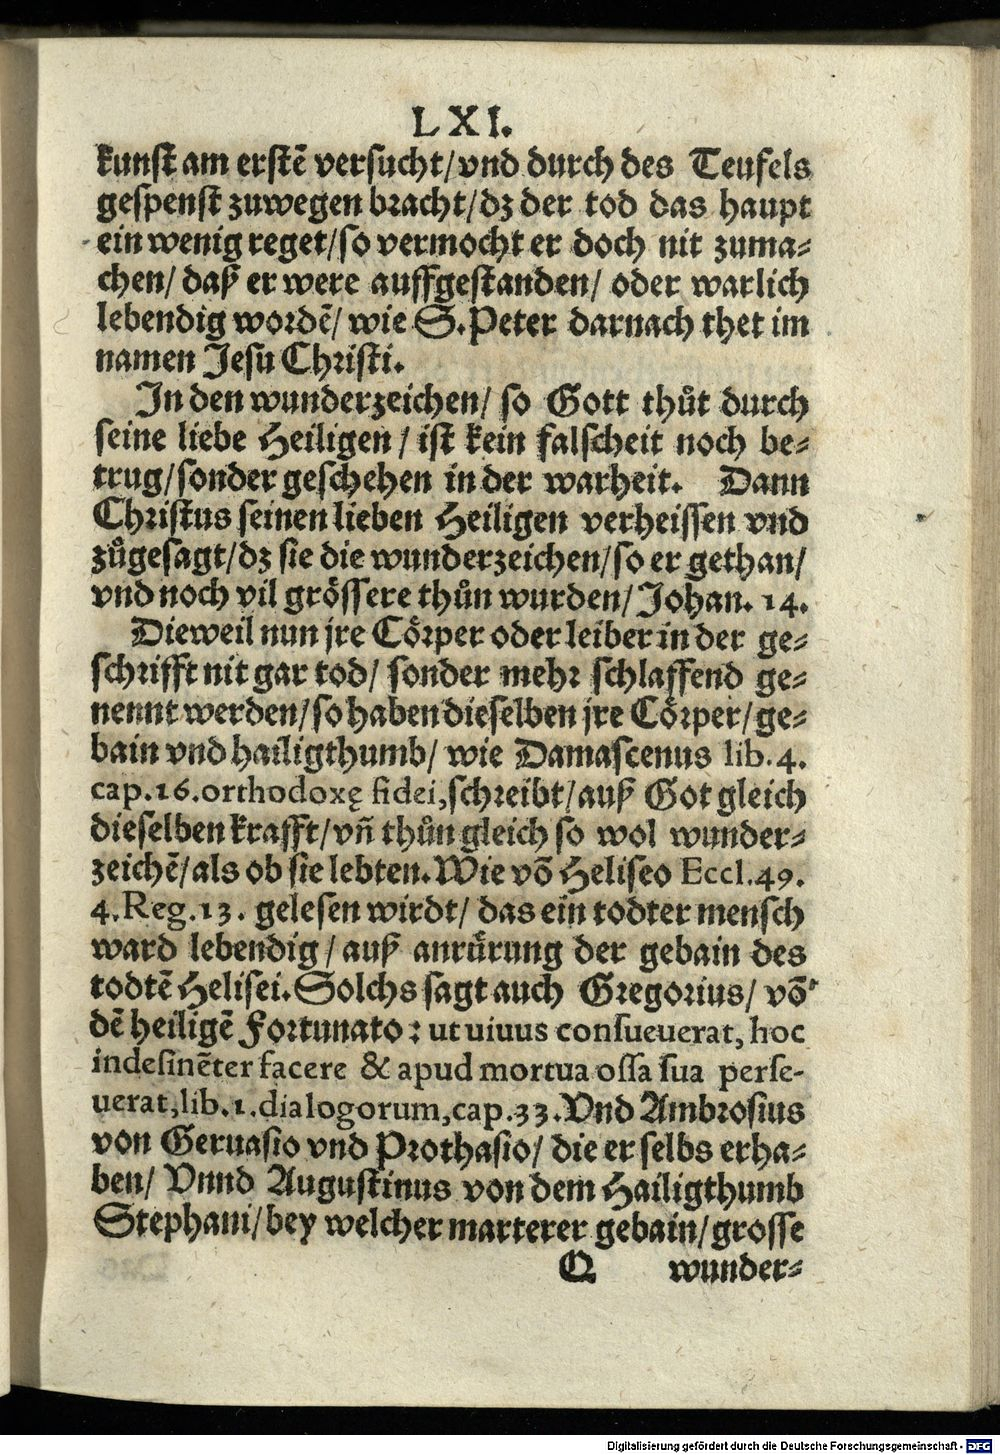 LXI.
kunst am erstē versucht/vnd durch des Teufels
gespenst zuwegen bracht/dz der tod das haupt
ein wenig reget/so vermocht er doch nit zuma-
chen/ daß er were auffgestanden/ oder warlich
lebendig wordē/ wie S. Peter darnach thet im
namen Jesu Christi.
In den wunderzeichen/ so Gott thůt durch
seine liebe Heiligen/ ist kein falscheit noch be-
trug/sonder geschehen in der warheit. Dann
Christus seinen lieben Heiligen verheissen vnd
zůgesagt/dz sie die wunderzeichen/so er gethan/
vnd noch vil grössere thůn wurden/ Johan. 14.
Dieweil nun jre Cörper oder leiber in der ge-
schrifft nit gar tod/ sonder mehr schlaffend ge-
nennt werden/so haben dieselben jre Cörper/ge-
bain vnd hailigthumb/ wie Damascenus lib. 4.
cap. 16. orthodoxę fidei, schreibt/ auß Got gleich
dieselben krafft/ vñ thůn gleich so wol wunder-
zeichē/als ob sie lebten. Wie vō Heliseo Eccl. 49.
4. Reg. 13. gelesen wirdt/ das ein todter mensch
ward lebendig/ auß anrürung der gebain des
todtē Helisei. Solchs sagt auch Gregorius/ vō
dē heiligē Fortunato: ut uiuus consueuerat, hoc
indesinēter facere & apud mortua ossa sua perse-
uerat, lib. 1. dialogorum, cap. 33. Vnd Ambrosius
von Geruasio vnd Prothasio/ die er selbs erha-
ben/ Vnnd Augustinus von dem Hailigthumb
Stephani/bey welcher marterer gebain/grosse
Q wunder-
Digitalisierung gefördert durch die Deutsche Forschungsgemeinschaft - DFG